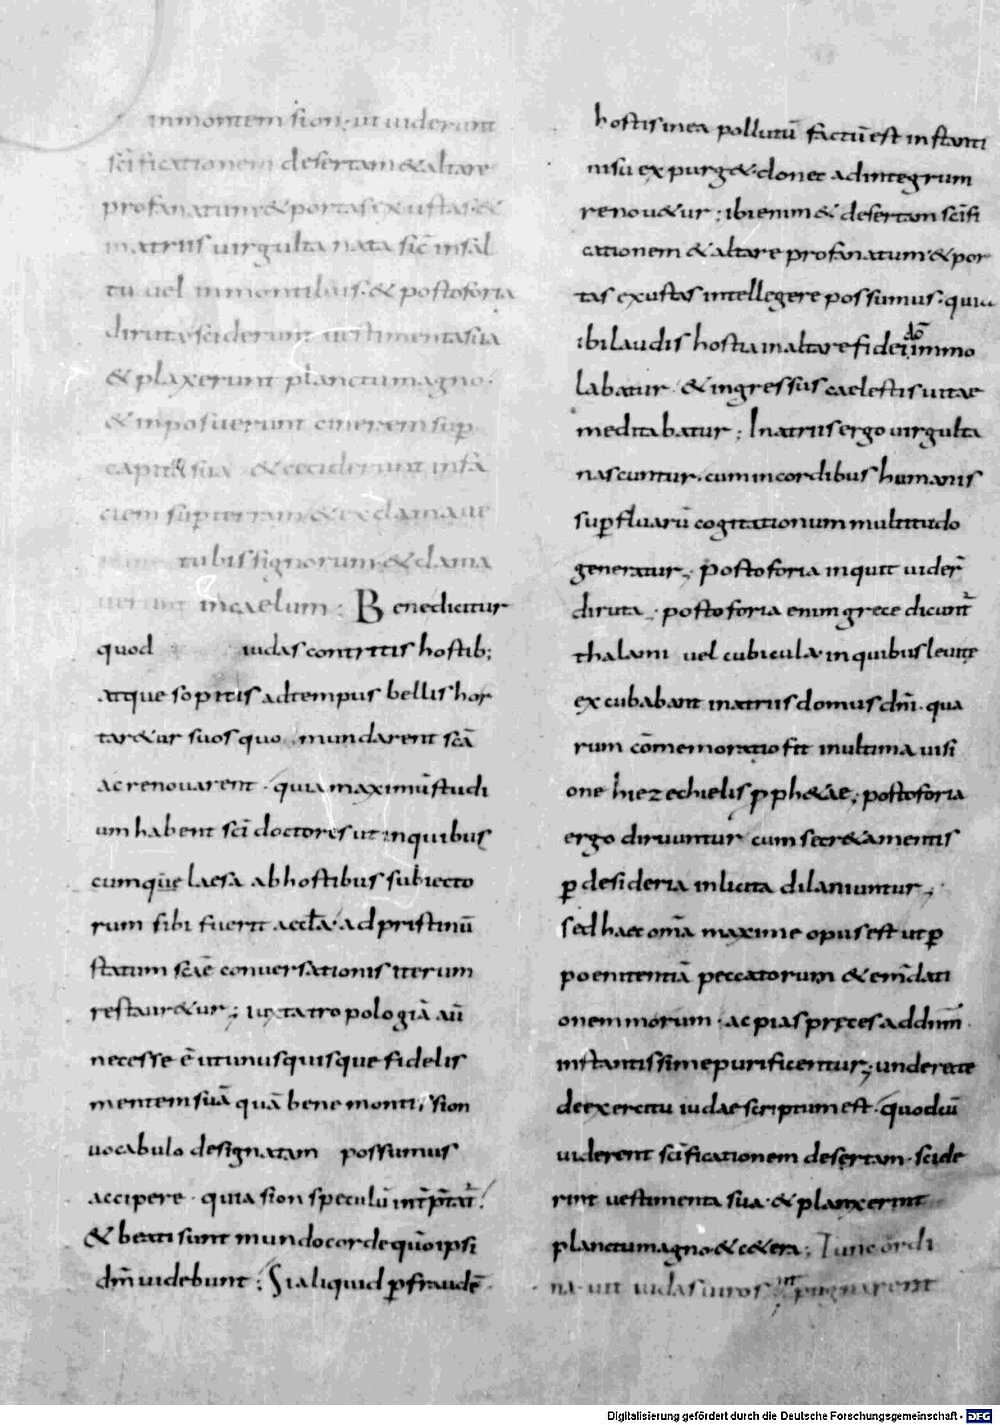 inmontem sion. et uiderunt
scīficationem desertam & altare
profanatum & portas exustas. &
inatriis uirgulta nata sic̄ insal
tu uel inmontibus. & postoforia
diruta. & sciderunt uestimenta sua
& planxerunt planctu magno.
& inposuerunt cinerem sup̄
capita sua & ceciderunt infa
ciem sup̄ terram & exclamaue
tubis signorum & clama
uerunt incaelum : Benedicitur
quod iudas contritis hostib;
atque sopitis adtempus bellis hor
tar&ur suos quo mundarent scā
ac renouarent. quia maximū studi
um habent scī doctores ut inquibus
cumque laesa abhostibus subiecto
rum sibi fuerit accl̄a. ad pristinū
statum scāe conuersationis iterum
restaur&ur; iuxta tropologiā aū
necesse ē ut unusquisque fidelis
mentem suā quā bene monti,, sion
uocabulo designatam possumus
accipere. quia sion speculū int̄p̄tat̄.
& beati sunt mundo corde quō ipsi
dm̄ uidebunt : Si aliquid p̄ fraudē
hostis inea pollutū factū est instanti
nisu expurg&. donec adintegrum
renou&ur; ibi enim & desertam scīfi
cationem & altare profanatum. & por
tas exustas intellegere possumus. quia
ibi laudis hostia inaltare fidei dō immo
labatur. & ingressus caelestis uitae
meditabatur; Inatriis ergo uirgulta
nascuntur. cum incordibus humanis
sup̄fluarū cogitationum multitudo
generatur; postoforia inquit uider̄
diruta. postoforia enim grece dicunt̄
thalami uel cubicula. inquibus leuitę
excubabant inatriis domus dm̄. qua
rum cōmemoratio fit inultima uisi
one hiezechielis pph&ae; postoforia
ergo diruuntur cum secr&a mentis
p̄ desideria inlicita dilaniuntur;
sed haec om̄a maxime opus est ut p̄
poenitentiā peccatorum & em̄dati
onem morum. ac pias pręces ad dnm̄
instantissime purificentur; unde recte
de exercitu iudae scriptum est. quod cū
uiderent scīficationem desertam. scide
rint uestimenta sua. & planxerint
planctu magno & c&era; Tunc ordi
na uit iudas uiros ut pugnarent